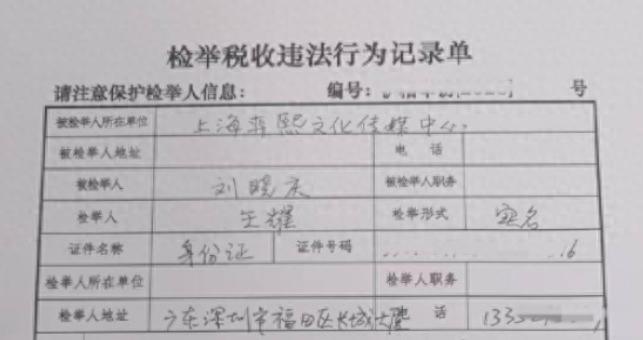 检举税收违法行为记录单
请注意保护检举人信息： 编号： 号
被检举人所在单位 上海 熙文化传媒中心
被检举人地址 电 话
被检举人 刘晓庆 被检举人职务
检举人 王耀 检举形式 实名
证件名称 身份证 证件号码 16
检举人所在单位 检举人职务
检举人地址 广东深圳市福田区长城大厦 话 133